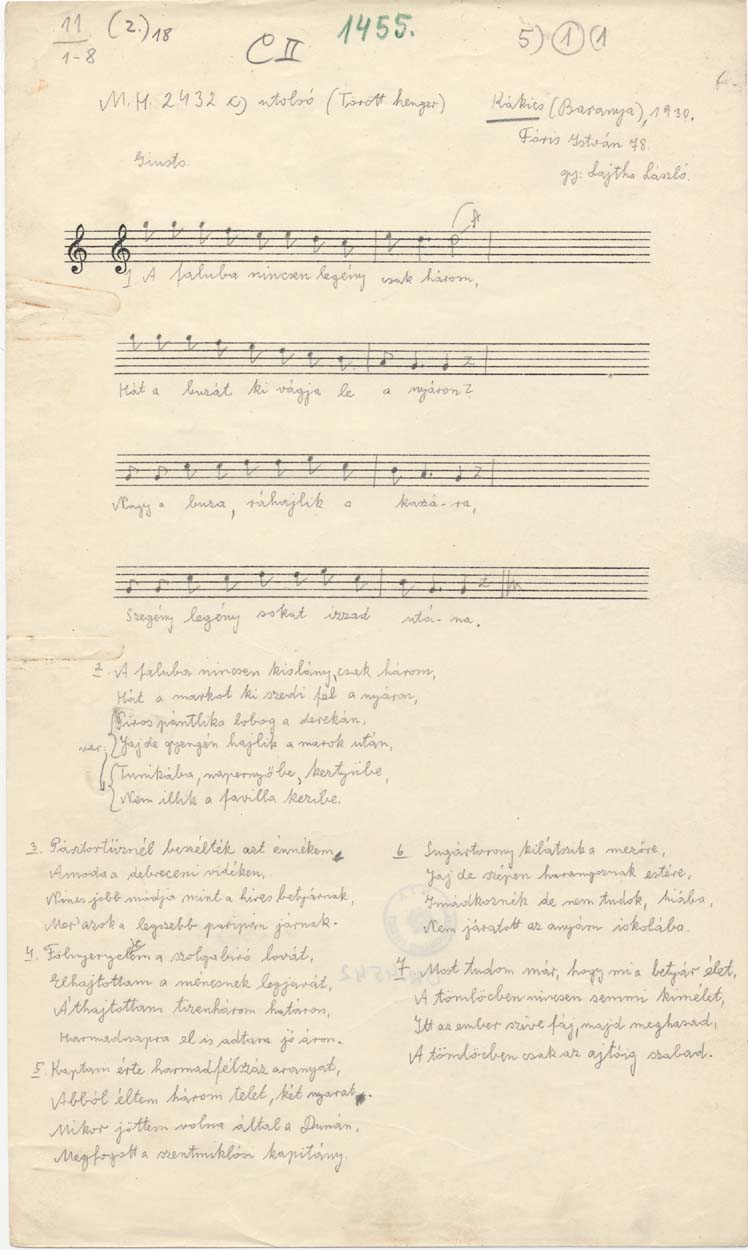 11 (2.) 18 1455. 5) 1 (1
1-8 C II
M.H. 2432 c) utolsó (Törött henger) Kákics (Baranya), 1930.
Fóris István 78.
Giusto. gy: Lajtha László.
1 A faluba nincsen legény csak három,
Hát a buzát ki vágja le a nyáron?
Nagy a buza, ráhajlik a kaszá-ra,
Szegény legény sokat izzad utá-na.
2. A faluba nincsen kislány, csak három,
Hát a markot ki szedi föl a nyáron,
Piros pántlika lobog a derekán,
var: Jaj de gyengén hajlik a marok után,
Tunikába, napernyőbe, keztyübe,
Nem illik a favilla kezibe.
3. Pásztortüznél beszélték azt énnékem,
Amoda a debreceni vidéken,
Nincs jobb módja mint a hires betyárnak,
Mer' azok a legszebb paripán járnak.
4. Fölnyergelem a szolgabiró lovát,
Elhajtottam a ménesnek legjavát,
Áthajtottam tizenhárom határon,
Harmadnapra el is adtam jó áron.
5. Kaptam érte harmadfélszáz aranyat,
Abból éltem három telet, két nyarat.
Mikor jöttem volna által a Dunán,
Megfogott a szentmiklósi kapitány.
6 Sugártorony kilátszik a mezőre,
Jaj de szépen harangoznak estére,
Imádkoznék de nem tudok, hiába,
Nem járatott az anyám iskolába.
7. Most tudom már, hogy mi a betyár élet,
A tömlöcben nincsen semmi kimélet,
Itt az ember szive fáj, majd meghasad,
A tömlöcben csak az ajtóig szabad.